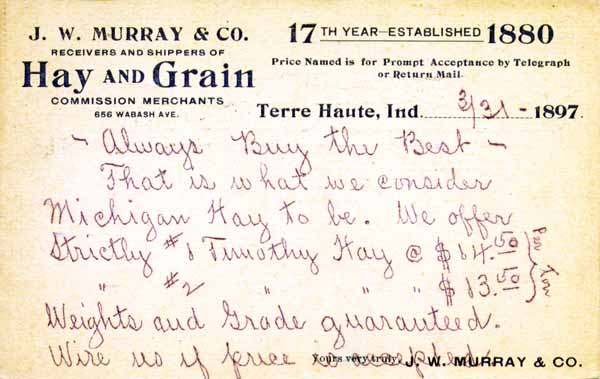 J. W. MURRAY & CO.
RECEIVERS AND SHIPPERS OF
Hay AND Grain
COMMISSION MERCHANTS
656 WABASH AVE.
17TH YEAR—ESTABLISHED 1880
Price Named is for Prompt Acceptance by Telegraph
or Return Mail.
Terre Haute, Ind. 3/31 - 1897.
- Always Buy the Best -
That is what we consider
Michigan Hay to be. We offer
Strictly #1 Timothy Hay @ $14.50 Per Ton
" #2 " " " $13.50
Weights and Grade guaranteed.
Wire us if price is accepted.
Yours very truly, J. W. MURRAY & CO.